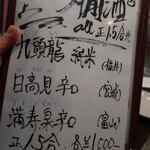 all 正1.5合
九頭龍 純米
(福井)
日高見 辛口
(宮城)
満寿泉 辛口
(富山)
正1.5合 各¥1000-